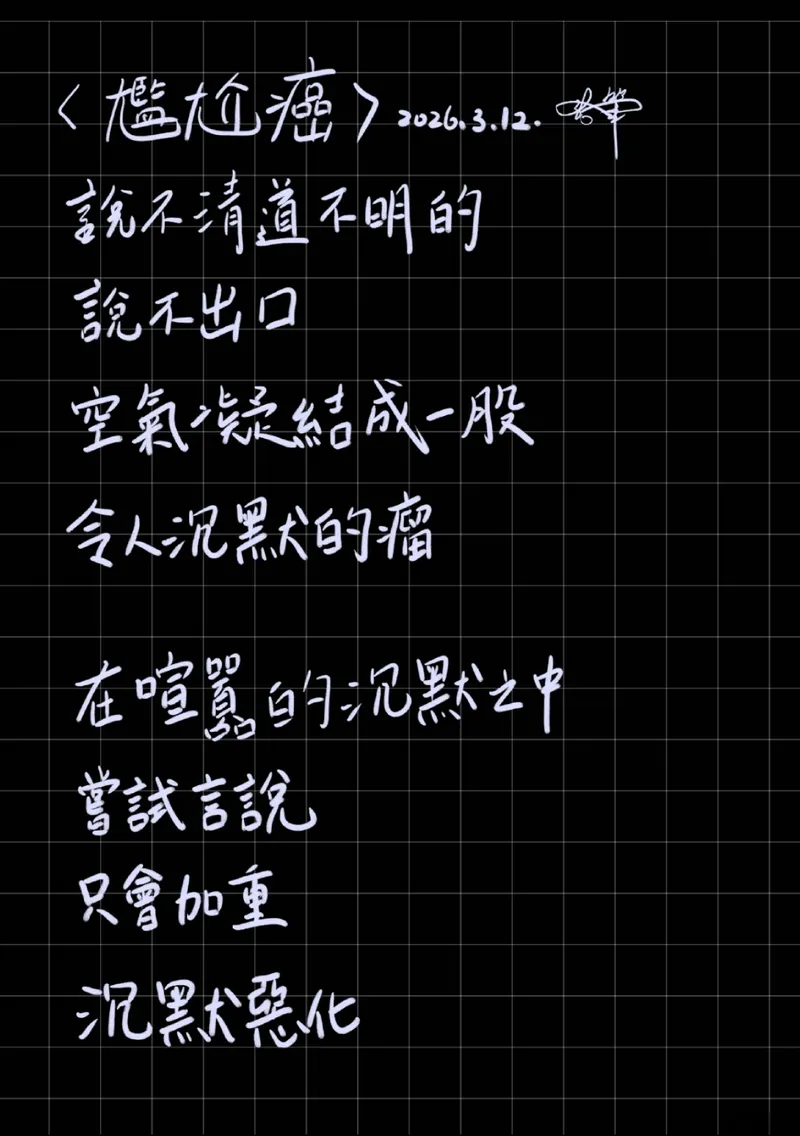 〈尷尬癌〉2026.3.12.
說不清道不明的
說不出口
空氣凝結成一股
令人沉默的瘤
在喧囂的沉默之中
嘗試言說
只會加重
沉默惡化